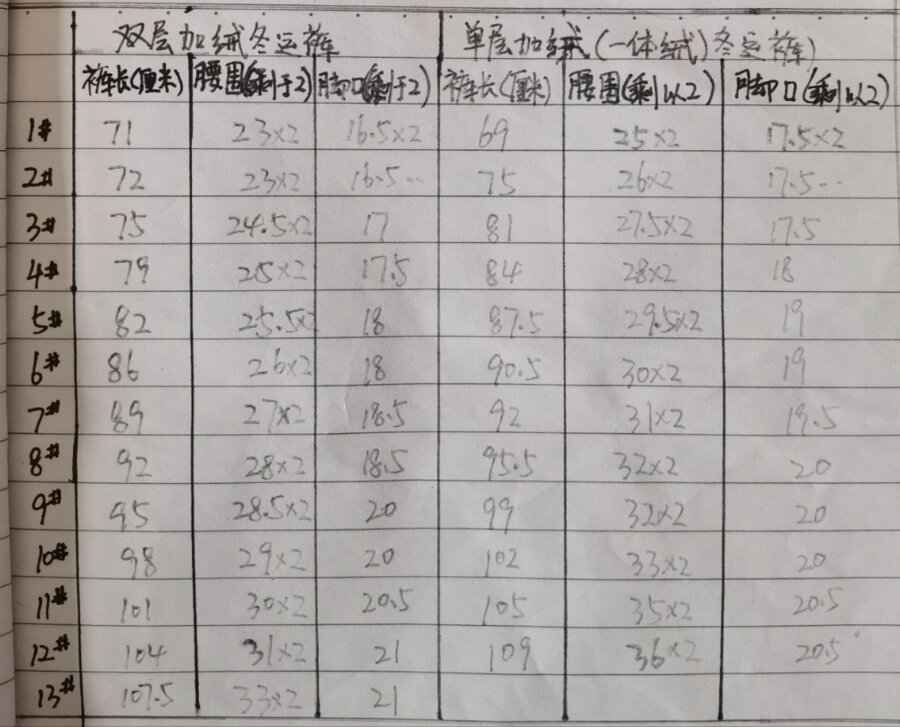 双层加绒冬运裤 单层加绒(一体绒)冬运裤)
裤长(厘米) 腰围(乘于2) 脚口(乘于2) 裤长(厘米) 腰围(乘以2) 脚口(乘以2)
1# 71 23×2 16.5×2 69 25×2 17.5×2
2# 72 23×2 16.5... 75 26×2 17.5...
3# 75 24.5×2 17 81 27.5×2 17.5
4# 79 25×2 17.5 84 28×2 18
5# 82 25.5×2 18 87.5 29.5×2 19
6# 86 26×2 18 90.5 30×2 19
7# 89 27×2 18.5 92 31×2 19.5
8# 92 28×2 18.5 95.5 32×2 20
9# 95 28.5×2 20 99 32×2 20
10# 98 29×2 20 102 33×2 20
11# 101 30×2 20.5 105 35×2 20.5
12# 104 31×2 21 109 36×2 20.5
13# 107.5 33×2 21